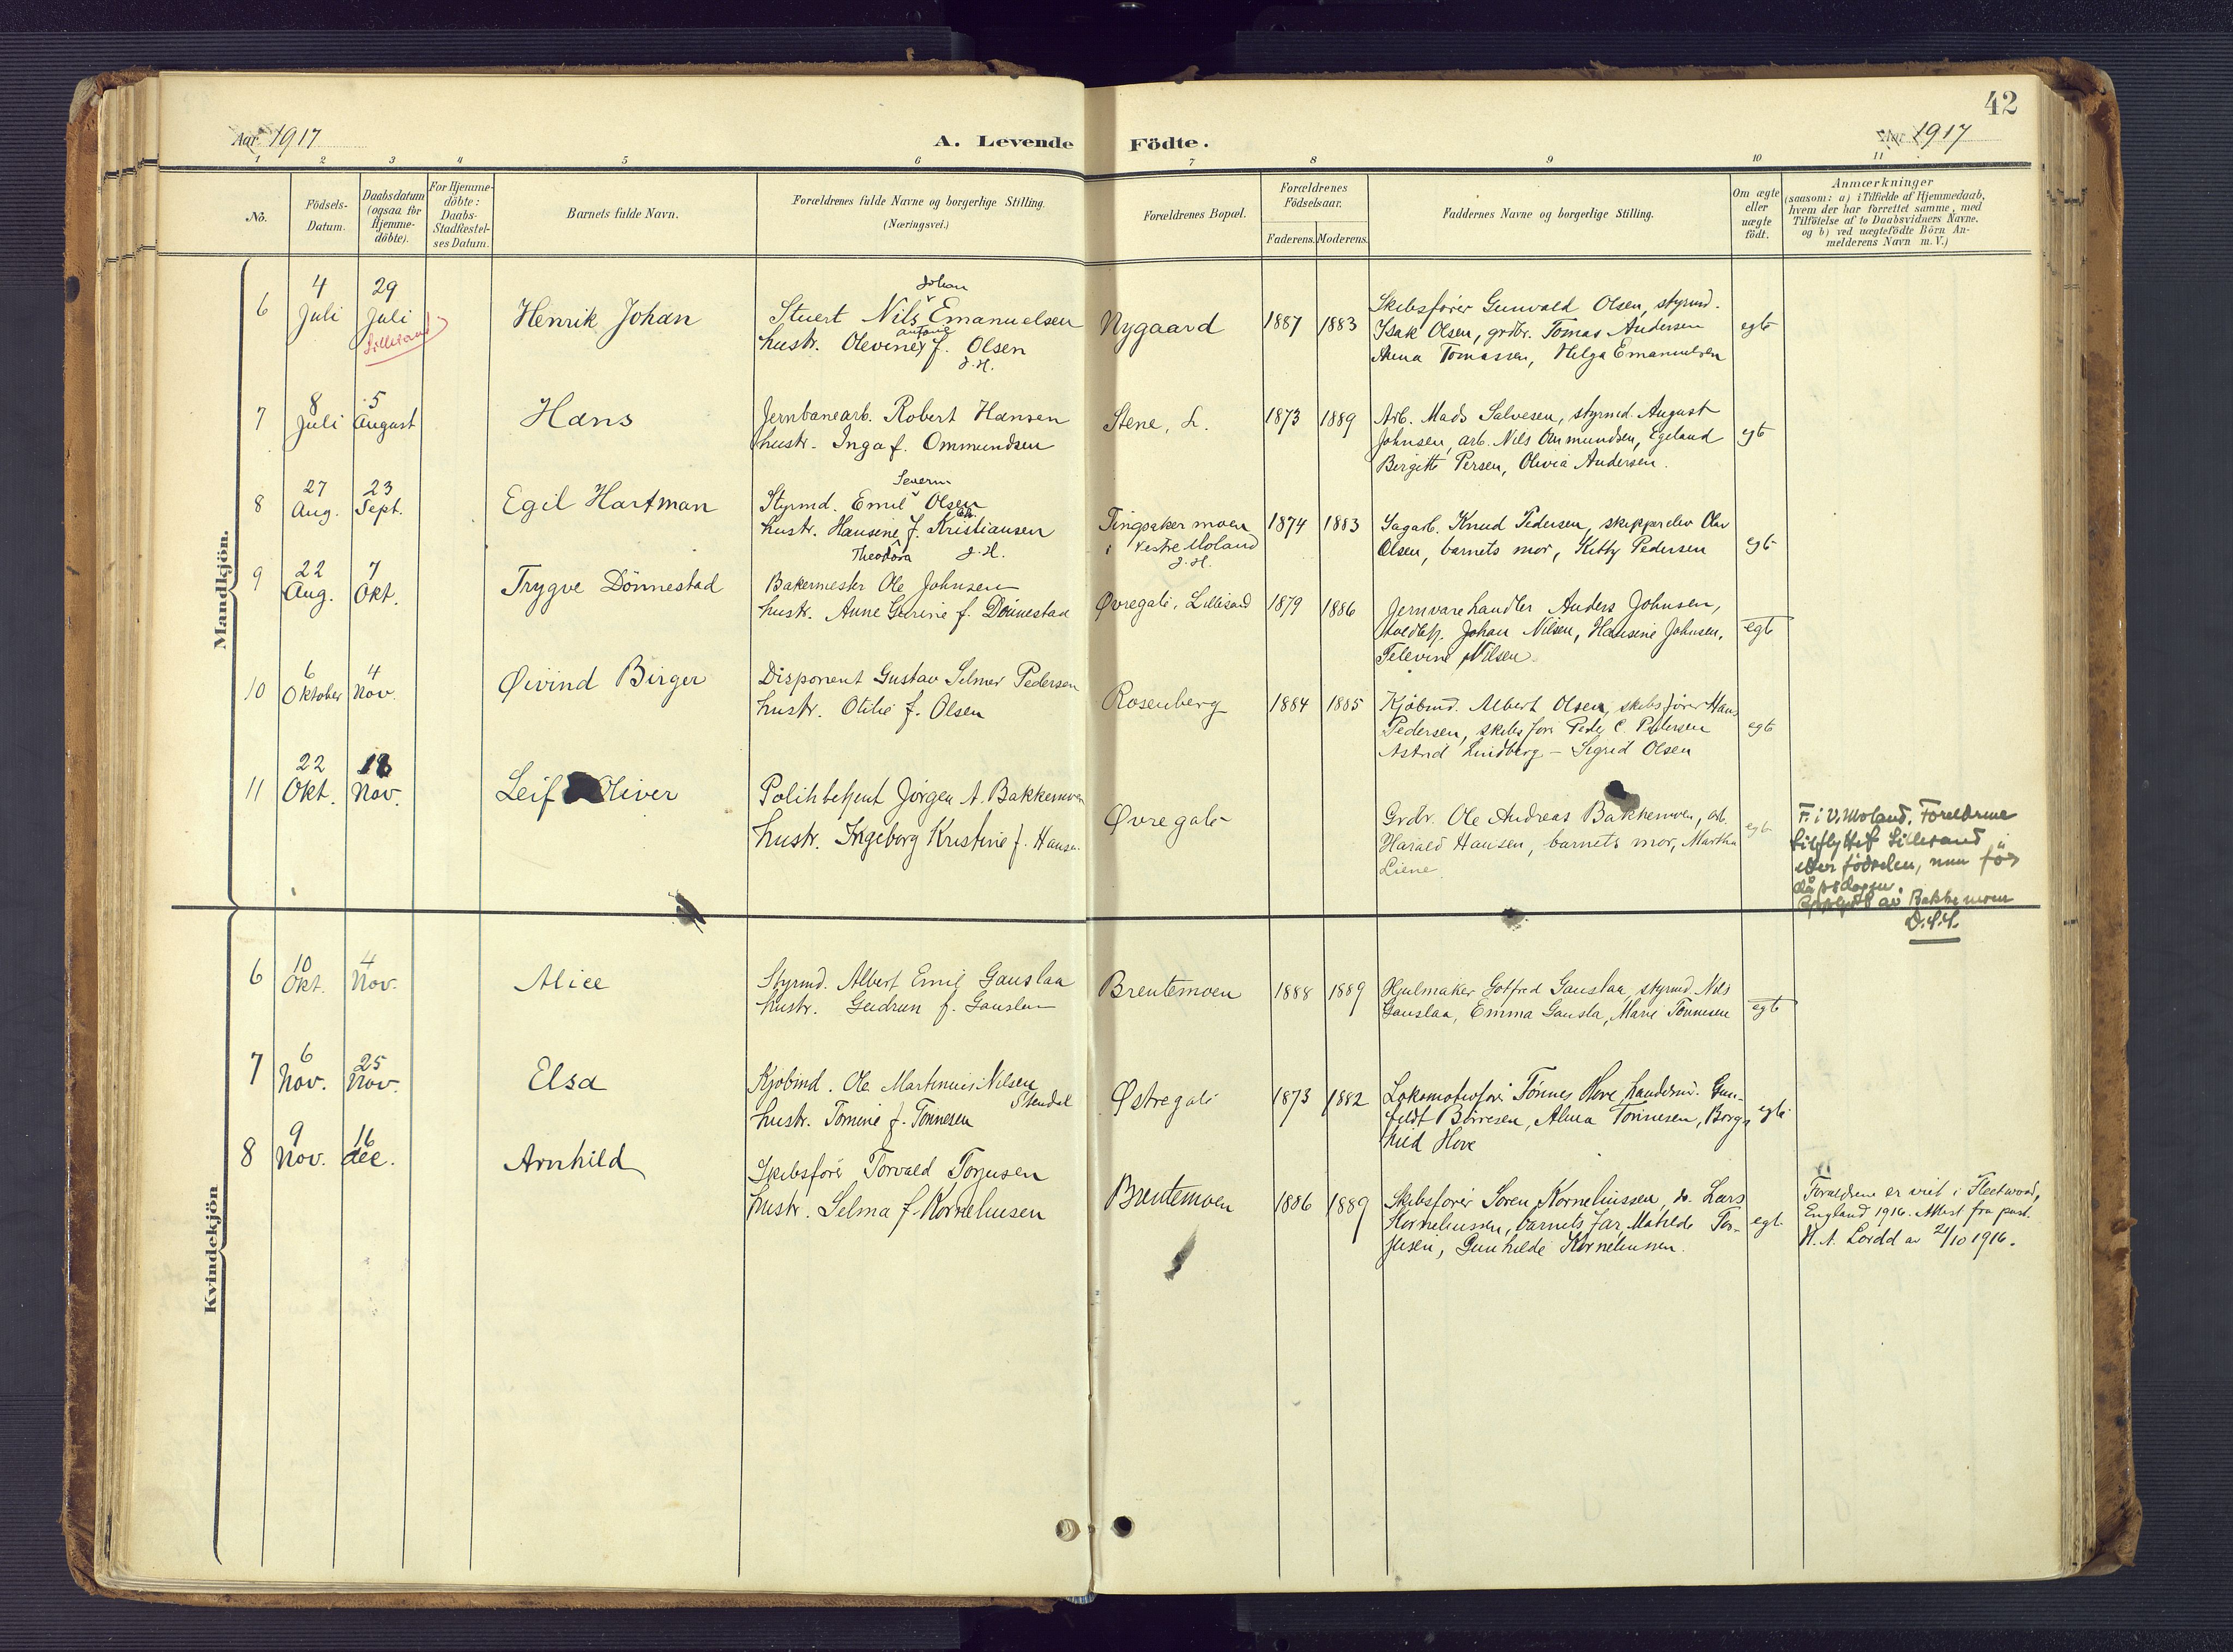 42
Aar 1917
A. Levende Födte.
Aar 1917
1 2 3 4 5 6 7 8 9 10 11
No.
Födsels-
Datum.
Daabsdatum
(ogsaa for
Hjemme-
döbte).
For Hjemme-
döbte:
Daabs-
Stadfæstel-
ses Datum.
Barnets fulde Navn.
Forældrenes fulde Navne og borgerlige Stilling.
(Næringsvei.)
Forældrenes Bopæl.
Forældrenes
Födselsaar.
Faderens. Moderens.
Faddernes Navne og borgerlige Stilling.
Om ægte
eller
uægte
födt.
Anmærkninger
(saasom: a) i Tilfælde af Hjemmedaab,
hvem der har forrettet samme, med
Tilföielse af to Daabsvidners Navne.
og b) ved uægtefödte Börn An-
melderens Navn m. V.)
Mandkjön.
6
4
Juli
29
Juli
Lillesand
Henrik Johan
Johan
Stuert Nils Emanuelsen
Antonie
hustr. Olevine f. Olsen
J. H.
Nygaard
1887 1883
Skibsfører Gunvald Olsen, styrmd.
Isak Olsen, grdbr. Tomas Andersen
Anna Tomassen, Helga Emanuelsen
egte
7
8
Juli
5
August
Hans
Jernbanearb. Robert Hansen
hustr. Inga f. Ommundsen
Stene, L.
1873 1889
Arb. Mads Salvesen, styrmd. August
Johnsen, arb. Nils Ommundsen, Egeland
Birgitte Persen, Olivia Andersen.
egte
8
27
Aug.
23
Sept.
Egil Hartman
Severin
Styrmd. Emil Olsen
hustr. Hansine f. Kristiansen
Theodora J. H.
Tingsaker moen
i Vestre Moland
J. H.
1874 1883
Sagarb. Knud Pedersen, skipperelev Olav
Olsen, barnets mor, Kitty Pedersen
egte
9
22
Aug.
7
Okt.
Trygve Dönnestad
Bakermester Ole Johnsen
hustr. Anne Gurine f. Dönnestad
Øvregate, Lillesand
1879 1886
Jernvarehandler Anders Johnsen,
Johan Nilsen, Hansine Johnsen,
Televine Nilsen
egte
10
6
Oktober
4
Nov.
Øivind Birger
Disponent Gustav Selmer Pedersen
hustr. Otilie f. Olsen
Rosenberg
1884 1885
Kjöbmd. Albert Olsen, skibsfører Hans
Pedersen, skibsfører Peder C. Pedersen
Astrid Lindberg – Sigrid Olsen
egte
11
22
Okt.
18
Nov.
Leif Oliver
Politibetjent Jörgen A. Bakkemoen
hustr. Ingeborg Kristine f. Hansen
Øvregate
Grdbr. Ole Andreas Bakkemoen, arb.
Harald Hansen, barnets mor, Martha
Liene
egte
F. i V. Moland. Foreldrene
tilflyttet Lillesand
etter fødselen, men før
dåpsdagen.
Opplyst av Bakkemoen
D.S.S.
Kvindekjön
6
10
Okt.
4
Nov.
Alice
Styrmd. Albert Emil Gauslaa
hustr. Gudrun f. Gauslaa
Brentemoen
1888 1889
Hjulmaker Gotfred Gauslaa, styrmd. Nils
Gauslaa, Emma Gausla, Marie Tönnesen
egte
7
6
Nov.
25
Nov.
Elsa
Kjöbmd. Ole Martinius Nilsen
Stendal
hustr. Tomine f. Tönnesen
Østregate
1873 1882
Lokomotivfører Tønnes Hove, handelsmd. Gun-
feldt Börresen, Alma Tönnesen, Borg-
hild Hove
egte
8
9
Nov.
16
dec.
Arnhild
Skibsfører Torvald Torjusen
hustr. Selma f. Korneliusen
Brentemoen
1886 1889
Skibsfører Sören Korneliussen, do. Lars
Korneliussen, barnets far, Matilde Tor-
jusen, Gunhilde Korneliussen.
egte
Forældrene er viet i Fleetwood,
England 1916. Attest fra past.
H. A. Lordd av 21/10 1916.